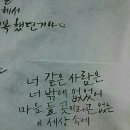 해서
했던거야
너 같은 사람은
너 밖에 없었어
마음 둘 곳이라곤 없는
이 세상 속에